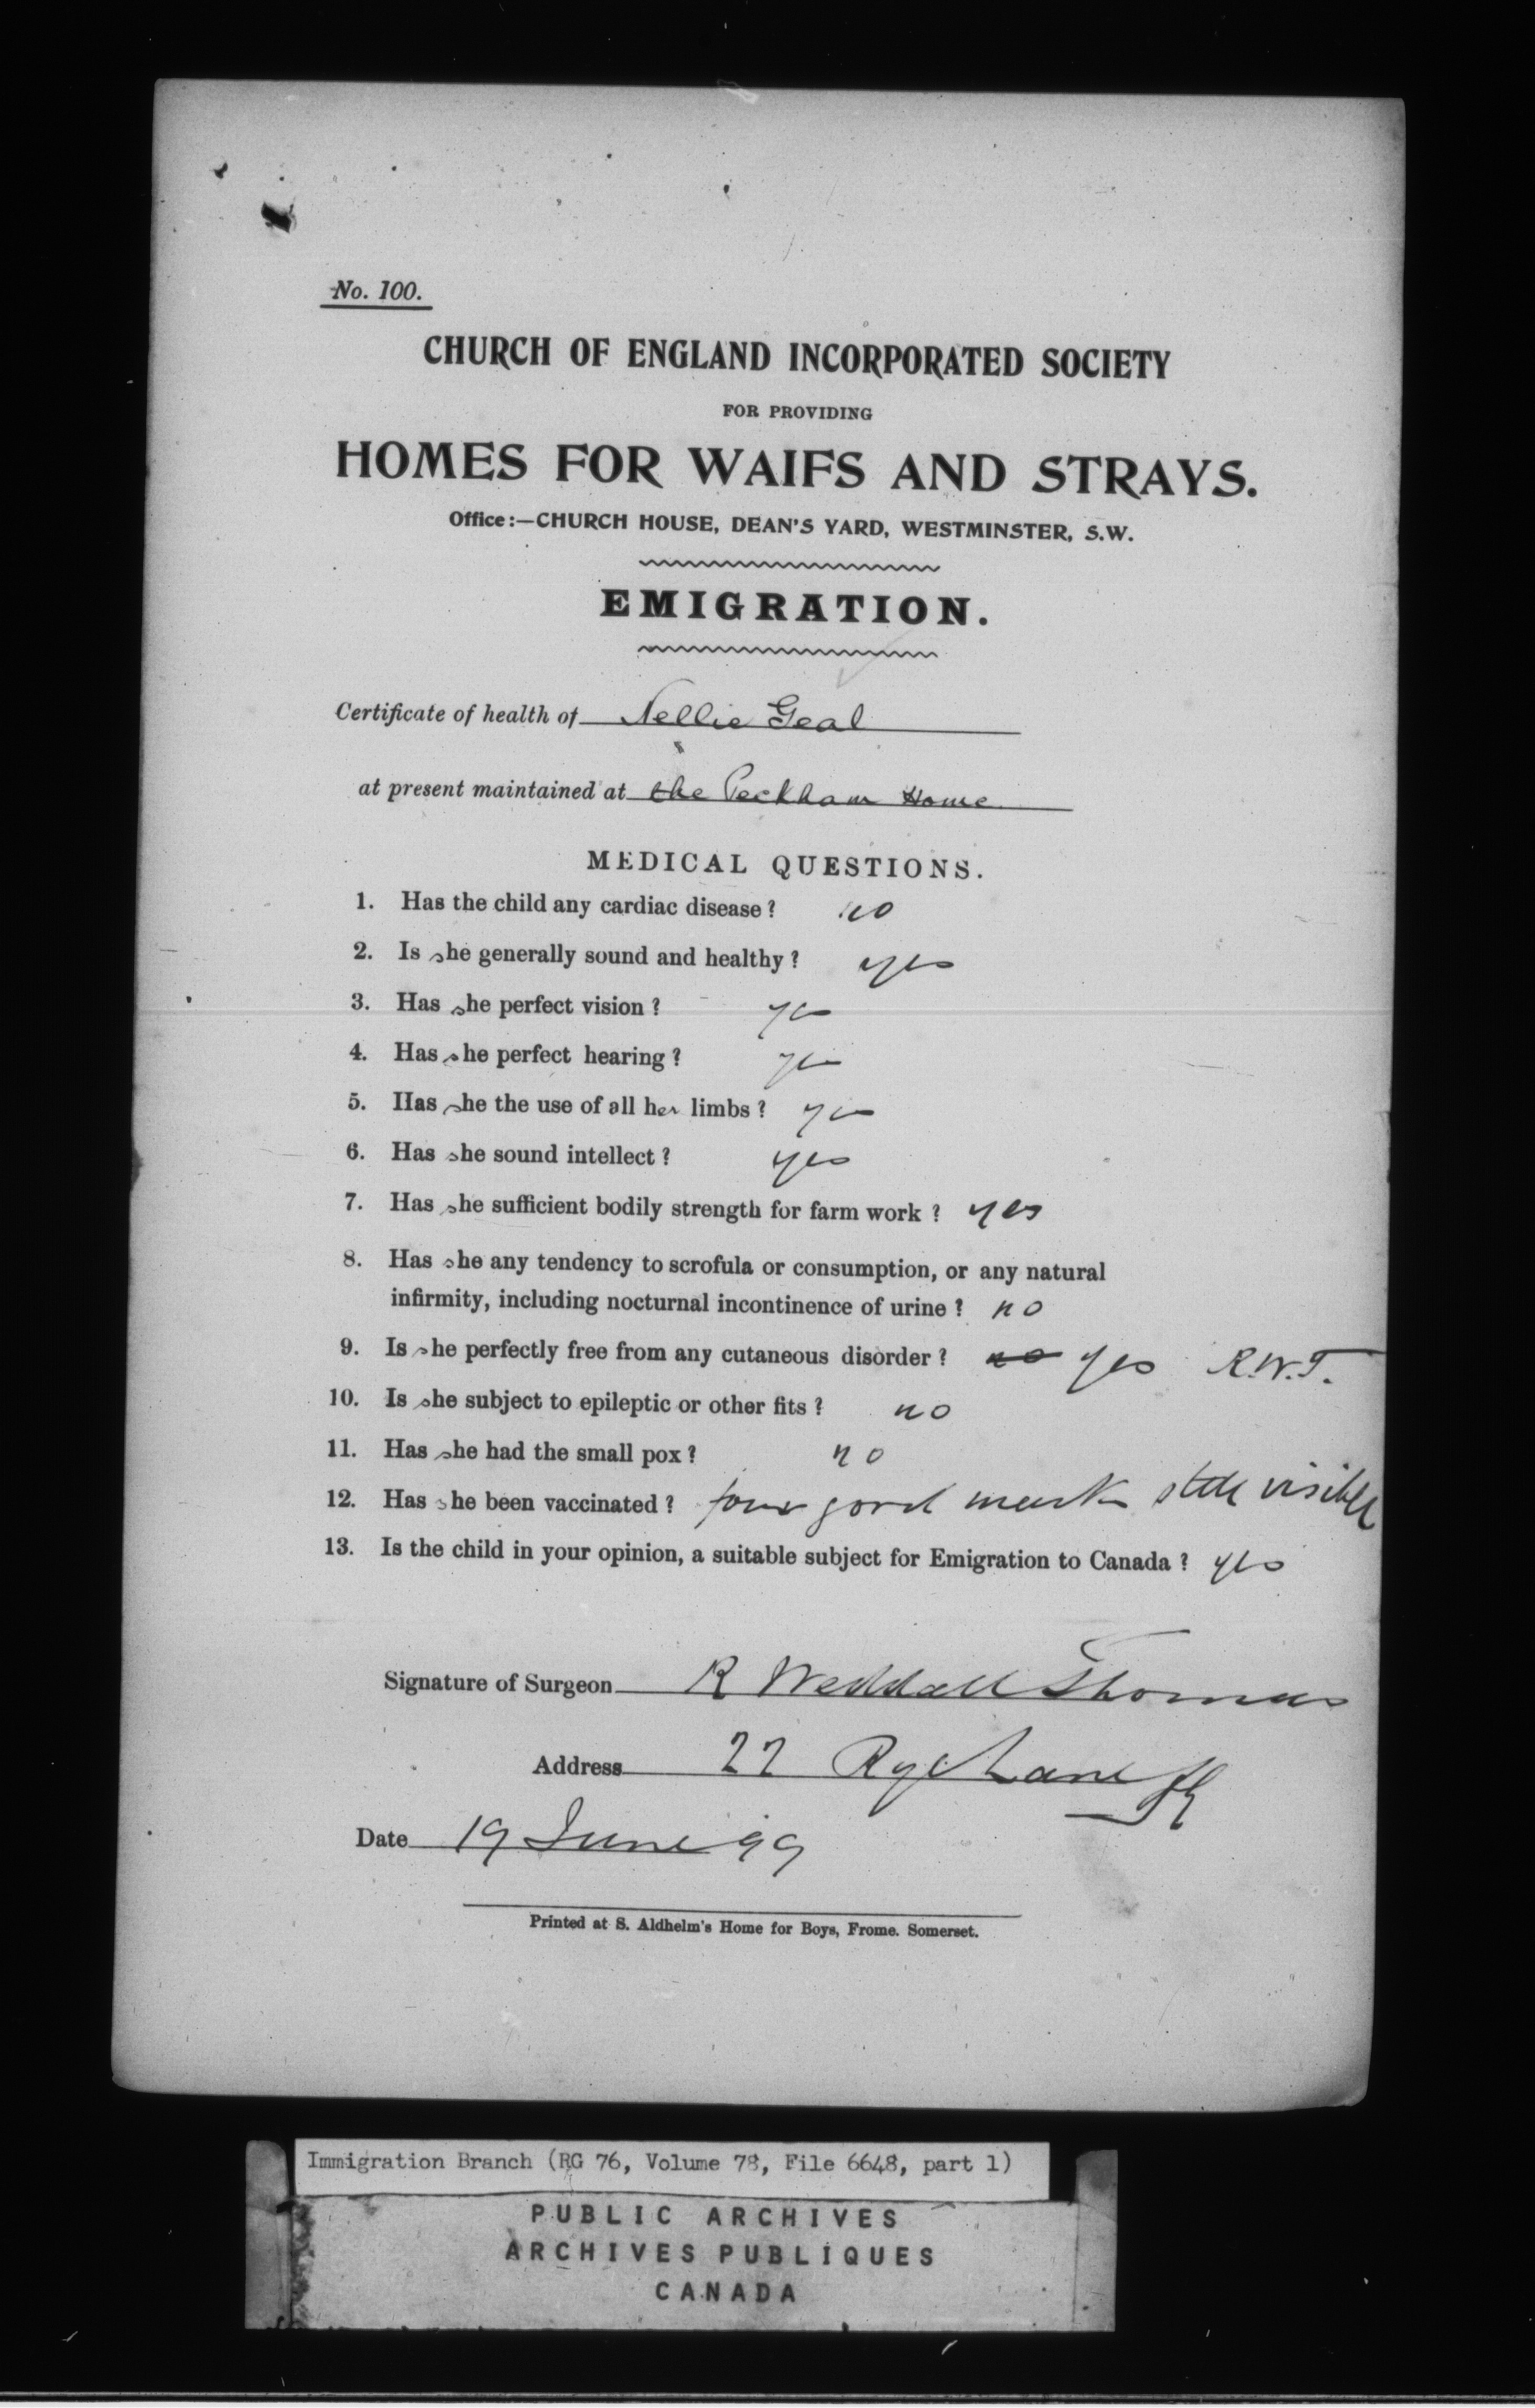 No. 100.
CHURCH OF ENGLAND INCORPORATED SOCIETY
FOR PROVIDING
HOMES FOR WAIFS AND STRAYS.
Office:—CHURCH HOUSE, DEAN'S YARD, WESTMINSTER, S.W.
EMIGRATION.
Certificate of health of Nellie Geal
at present maintained at the Peckham Home
MEDICAL QUESTIONS.
1. Has the child any cardiac disease? no
2. Is she generally sound and healthy? yes
3. Has she perfect vision? yes
4. Has she perfect hearing? yes
5. Has she the use of all her limbs? yes
6. Has she sound intellect? yes
7. Has she sufficient bodily strength for farm work? yes
8. Has she any tendency to scrofula or consumption, or any natural
infirmity, including nocturnal incontinence of urine? no
9. Is she perfectly free from any cutaneous disorder? no yes R.W.T.
10. Is she subject to epileptic or other fits? no
11. Has she had the small pox? no
12. Has she been vaccinated? four good marks still visible
13. Is the child in your opinion, a suitable subject for Emigration to Canada? yes
Signature of Surgeon R Weddall Thomas
Address 22 Rye Lane
Date 19 June 99
Printed at S. Aldhelm's Home for Boys, Frome. Somerset.
Immigration Branch (RG 76, Volume 78, File 6648, part 1)
PUBLIC ARCHIVES
ARCHIVES PUBLIQUES
CANADA